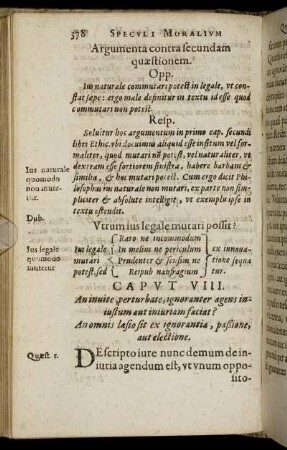 378 SPECVLI MORALIVM
Argumenta contra secundam
quæstionem.
Opp.
Ius naturale commutari potest in legale, vt con
stat sæpe: ergo male definitur in textu id esse quod
commutari non potest.
Resp.
Soluitur hoc argumentum in primo cap. secundi
libri Ethic. vbi docuimus aliquid esse insitum vel for
maliter, quod mutari nō potest, vel naturaliter, vt
dextram esse fortiorem sinistra, habere barbam &
similia, & hoc mutari potest. Cum ergo dicit Phi
losophus ius naturale non mutari, ex parte non sim
pliciter & absolute intelligit, vt exemplis ipse in
textu ostendit.
Ius naturale
quomodo
non mute-
tur.
Dub.
Vtrum ius legale mutari possit?
Ius legale
quomodo
mutetur
Ius legale
mutari
potest, sed
Raro ne incommodum
In melius ne periculum
Prudenter & sensim ne
Reipub naufragium
ex immuta-
tione sequa
tur.
CAPVT VIII.
An inuite, perturbate, ignoranter agens in-
iustum aut iniuriam faciat?
An omnis læsio sit ex ignorantia, passione,
aut electione.
Quæst 1.
DEscripto iure nunc demum de in-
iuria agendum est, vt vnum oppo
sito-